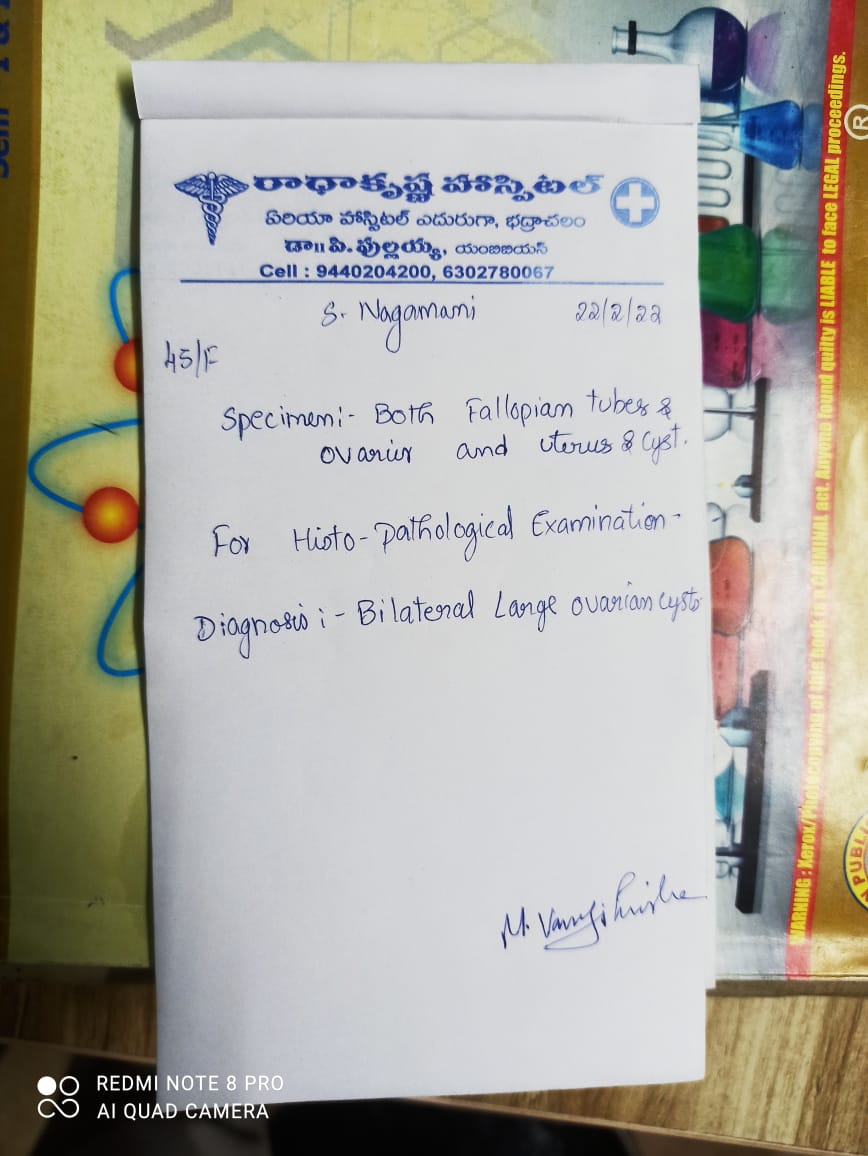 రాధాకృష్ణ హాస్పిటల్
ఏరియా హాస్పిటల్ ఎదురుగా, భద్రాచలం
డా॥ పి. పుల్లయ్య, యంబిబియస్
Cell : 9440204200, 6302780067
S. Nagamani 22/2/22
45/F
Specimen:- Both Fallopian tubes &
ovaries and uterus & cyst.
For Histo-pathological Examination-
Diagnosis :- Bilateral Large ovarian cysts
M.
WARNING : Xerox/Photocopying of this book is a CRIMINAL act. Anyone found guilty is LIABLE to face LEGAL proceedings.
®
PUBLI
REDMI NOTE 8 PRO
AI QUAD CAMERA